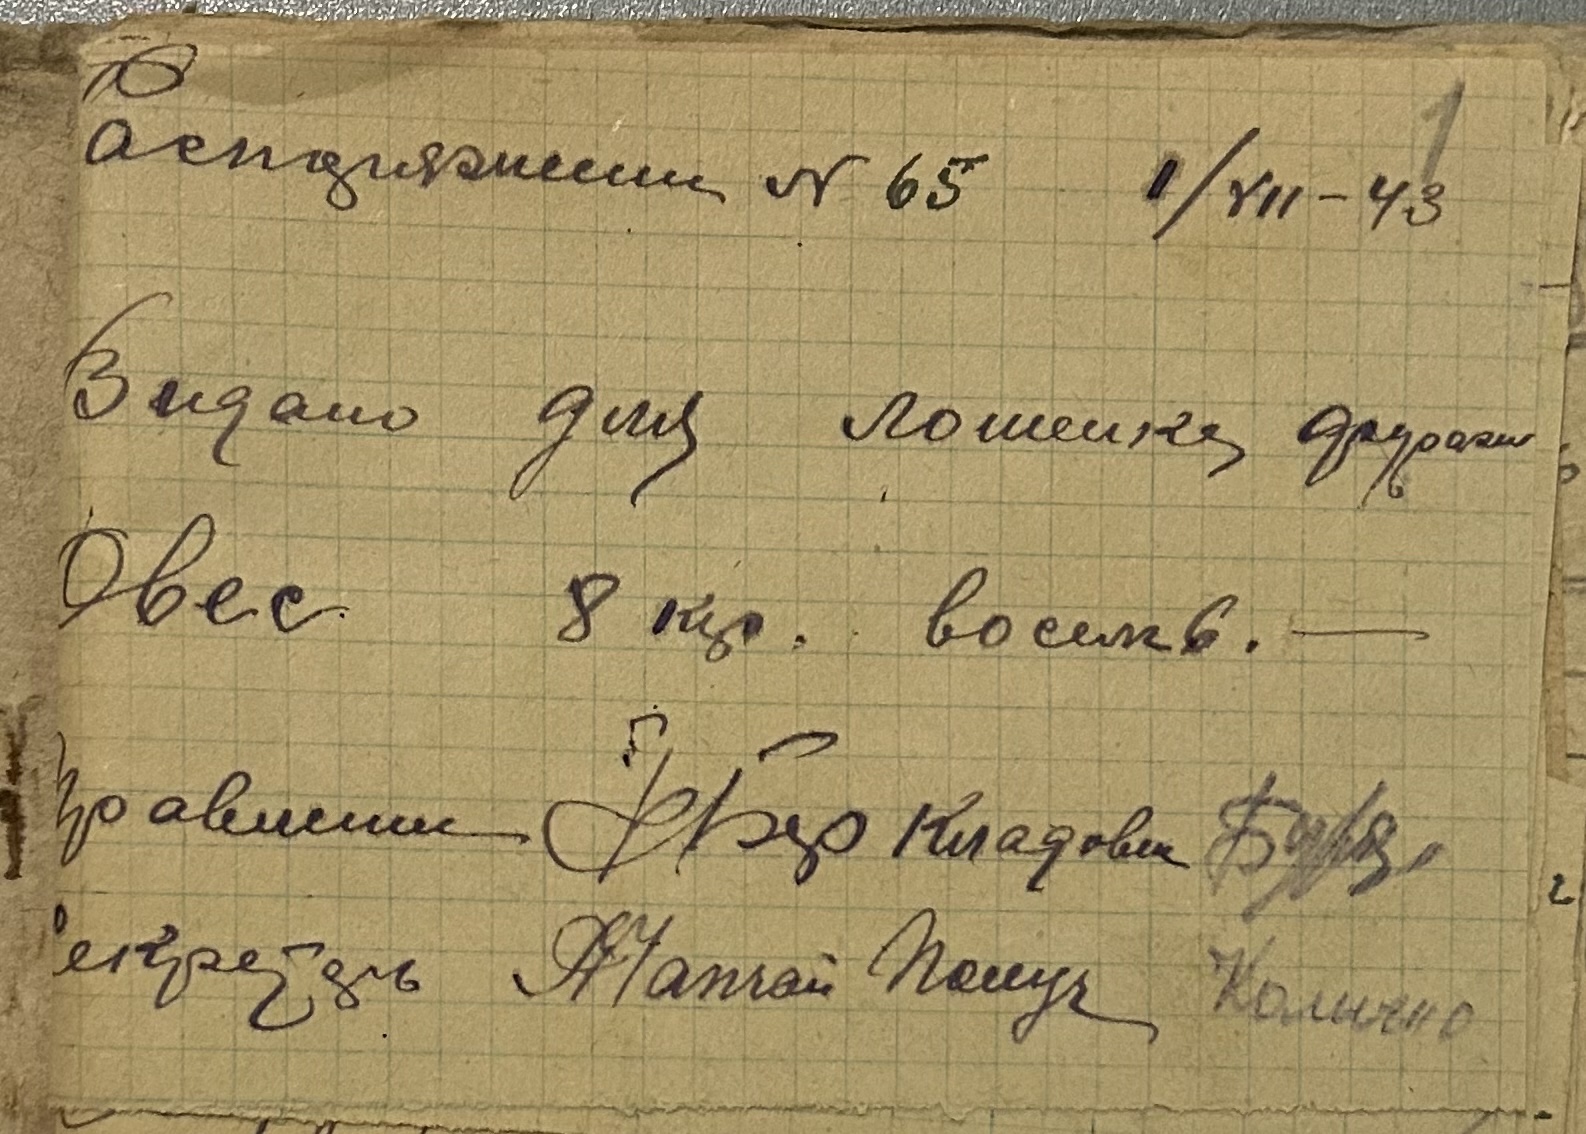 1
Распоряжении N 65 1/VII-43
Видано для лошенка фураж
Овес 8 кгр. восимь. —
Правлении Кладовщ
Секретарь Получ